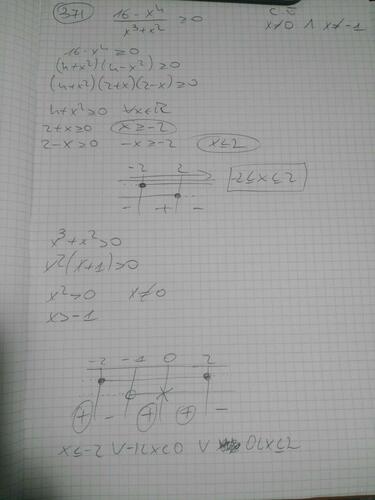 371 16-x⁴/x³+x² ≥0 C.E.
x≠0 ∧ x≠-1
16-x⁴≥0
(4+x²)(4-x²)≥0
(4+x²)(2+x)(2-x)≥0
4+x²≥0 ∀x∈ℝ
2+x≥0 x≥-2
2-x≥0 -x≥-2 x≤2
-2 2
- + - -2≤x≤2
x³+x²>0
x²(x+1)>0
x²>0 x≠0
x>-1
-2 -1 0 2
+ - + + -
x≤-2 ∨ -1<x<0 ∨ 0<x≤2